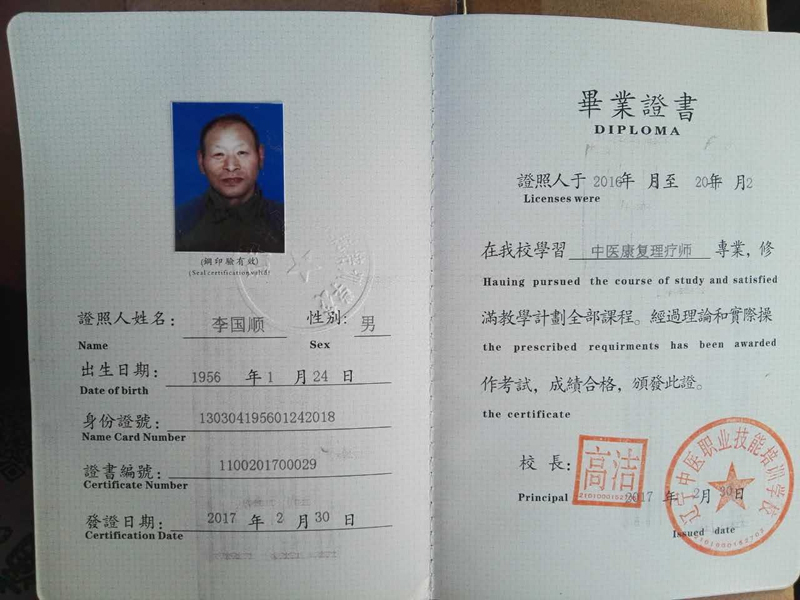 (鋼印驗有效)
(Seal certification valid)
證照人姓名: 李国顺 性别: 男
Name Sex
出生日期: 1956 年 1 月 24 日
Date of birth
身份證號: 130304195601242018
Name Card Number
證書編號: 1100201700029
Certificate Number
發證日期: 2017 年 2 月 30 日
Certification Date
畢業證書
DIPLOMA
證照人于 2016年 月至 20年 月2
Licenses were
在我校學習 中医康复理疗师 專業,修
Hauing pursued the course of study and satisfied
滿教學計劃全部課程。經過理論和實際操
the prescribed requirments has been awarded
作考試,成績合格,頒發此證。
the certificate
校長: 高洁
Principal 2017 年 2月 30日
Issued date
辽宁中医职业技能培训学校